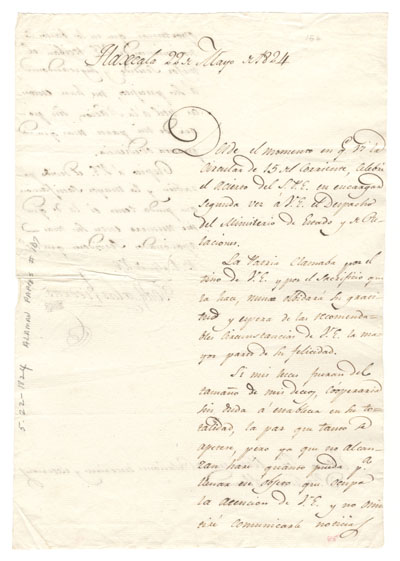 Tlaxcala 22 de Mayo de 1824
Desde el momento en q.
Circular de 15 del Corriente, celebré
el acierto del S.P.E. en encargar
Segunda vez á V.E. el Despacho
del Ministerio de Estado y de Re-
laciones.
La Patria Clamaba por el
tino de V.E. y por el Sacrificio que
la hace, nunca olvidará su grati-
tud y espera de las recomenda-
bles circunstancias de V.E. la ma-
yor parte de su felicidad.
Si mis luces fueran del
tamaño de mis deseos, cooperaria
sin duda á en su to-
talidad, la paz que tanto se
apetece, pero ya que no alcan-
zan haré quanto pueda p.
llenar ese objeto que ocupa
la atencion de V.E. y no omi-
tiré comunicarle noticias
ALAMAN PAPERS # 167
5-22-1824